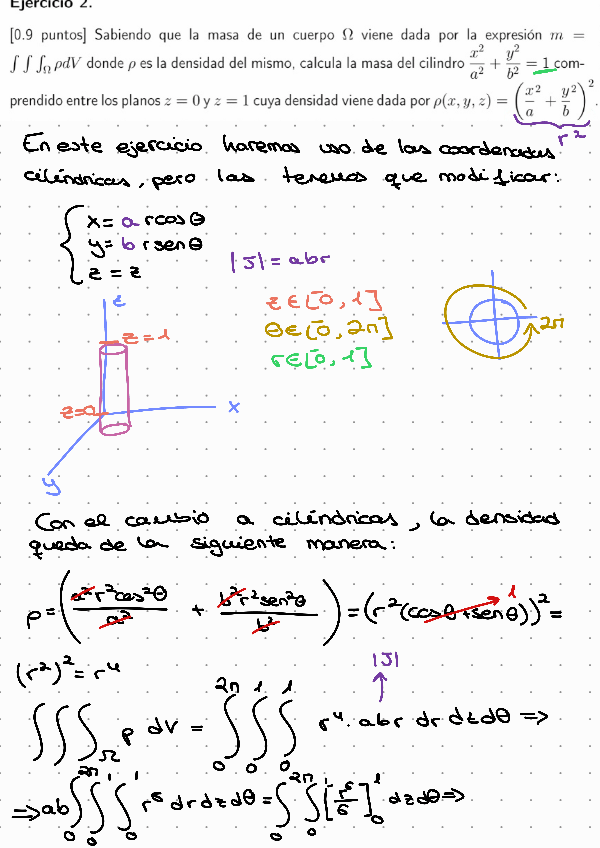 Ejercicio 2.
[0.9 puntos] Sabiendo que la masa de un cuerpo Ω viene dada por la expresión m =
∫∫∫_Ω ρdV donde ρ es la densidad del mismo, calcula la masa del cilindro x²/a² + y²/b² = 1 com-
prendido entre los planos z = 0 y z = 1 cuya densidad viene dada por ρ(x, y, z) = (x²/a + y²/b)².
r²
En este ejercicio haremos uso de las coordenadas
cilíndricas, pero las tenemos que modificar:
x = a r cos θ
y = b r sen θ
z = z
|J| = abr
z ∈ [0, 1]
θ ∈ [0, 2π]
r ∈ [0, 1]
2π
z
z = 1
z=0
x
y
Con el cambio a cilíndricas, la densidad
queda de la siguiente manera:
ρ = (a²r²cos²θ/a² + b²r²sen²θ/b²) = (r²(cosθ+senθ))² =
1
(r²)² = r⁴
|J|
∫∫∫_Ω ρ dV = ∫₀^2π ∫₀^1 ∫₀^1 r⁴· abr dr dz dθ =>
=> ab ∫₀^2π ∫₀^1 ∫₀^1 r⁵ dr dz dθ = ∫₀^2π ∫₀^1 [r⁶/6]₀^1 dz dθ =>